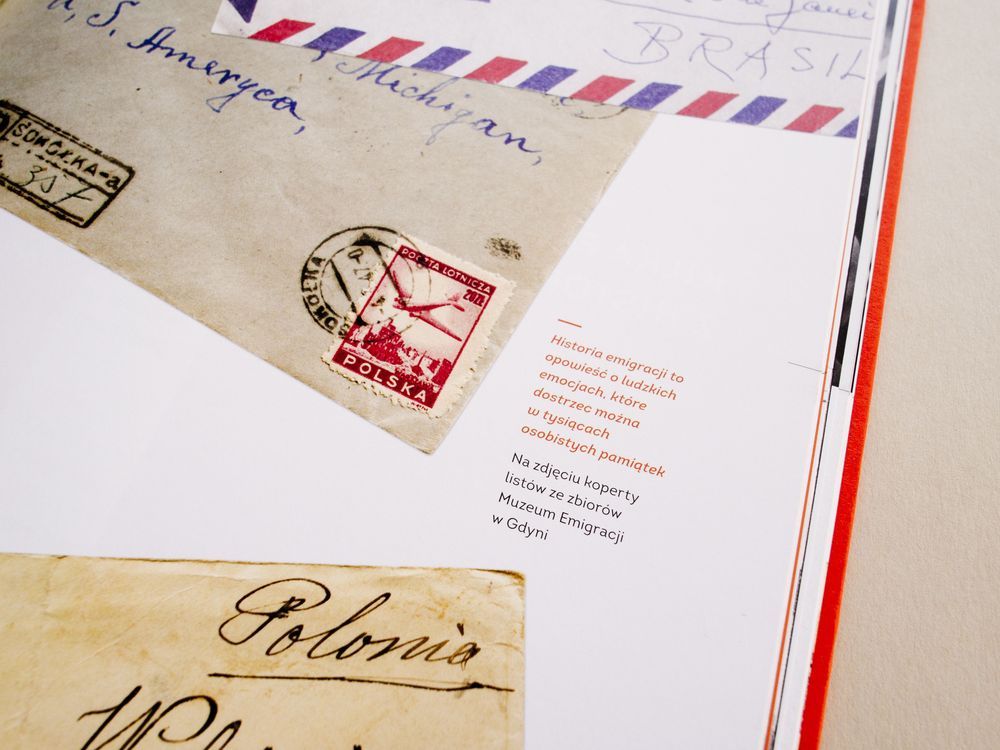 Janei
BRASIL
U, S. Ameryca,
Michigan,
SOKÓŁKA-a
357
SOKÓŁKA
POCZTA LOTNICZA
20 ZŁ
POLSKA
Historia emigracji to
opowieść o ludzkich
emocjach, które
dostrzec można
w tysiącach
osobistych pamiątek
Na zdjęciu koperty
listów ze zbiorów
Muzeum Emigracji
w Gdyni
Polonia